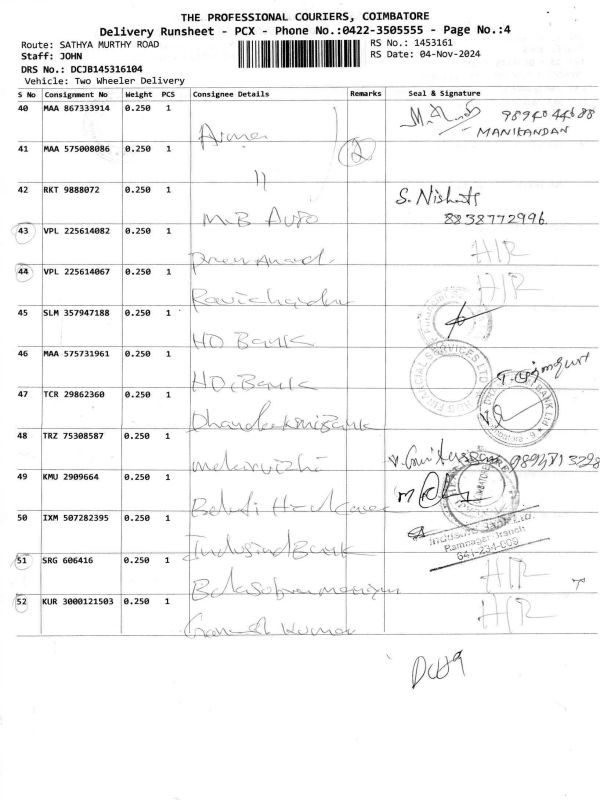 THE PROFESSIONAL COURIERS, COIMBATORE
Delivery Runsheet - PCX - Phone No.:0422-3505555 - Page No.:4
Route: SATHYA MURTHY ROAD
RS No.: 1453161
Staff: JOHN
RS Date: 04-Nov-2024
DRS No.: DCJB145316104
Vehicle: Two Wheeler Delivery
S No Consignment No Weight PCS Consignee Details Remarks Seal & Signature
40 MAA 867333914 0.250 1 9894044688
MANIKANDAN
41 MAA 575008086 0.250 1 2
"
42 RKT 9888072 0.250 1 M.B Auto S. Nishath
8838772996
43 VPL 225614082 0.250 1 Prem Anand H/R
44 VPL 225614067 0.250 1 Ravichandra H/R
45 SLM 357947188 0.250 1 HD Bank
46 MAA 575731961 0.250 1 HD Bank
FINANCIAL SERVICES LTD
47 TCR 29862360 0.250 1 Dhanalakshmi Bank
48 TRZ 75308587 0.250 1
49 KMU 2909664 0.250 1
50 IXM 507282395 0.250 1 IndusInd Bank
Ramnagar Branch
641-234-009
51 SRG 606416 0.250 1 Balasubramaniyan H/R
52 KUR 3000121503 0.250 1 Ganesh Kumar H/R